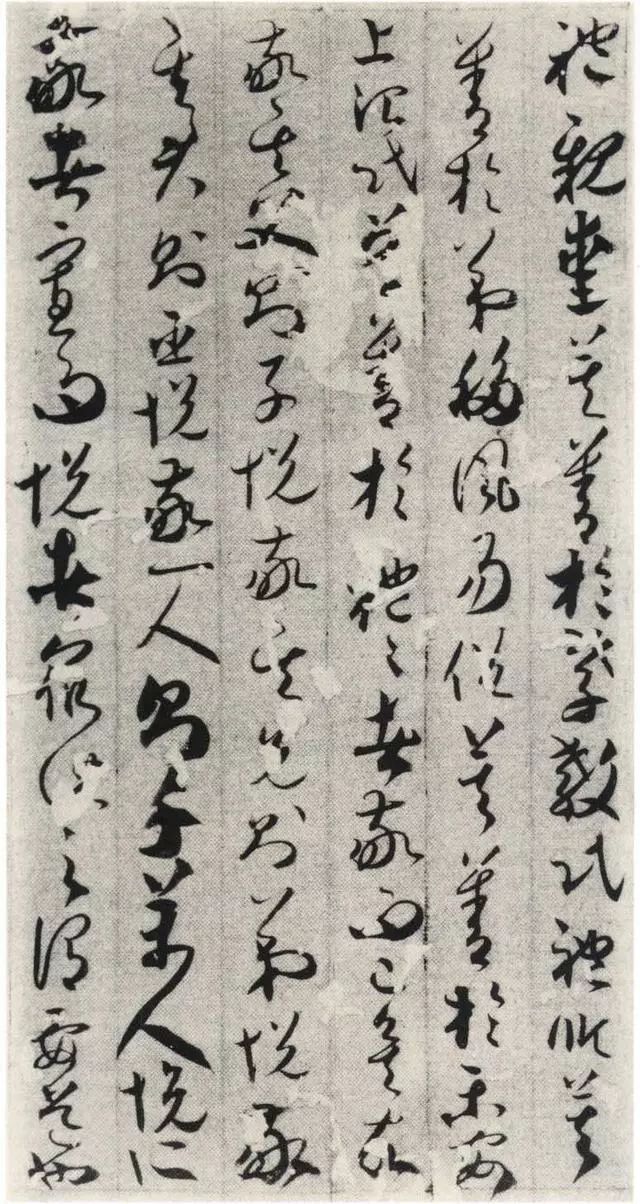 親愛莫善於孝教民禮順莫
善於弟移風易俗莫善於樂安
上治民莫善於禮々者敬而已矣故
敬其父則子悅敬其兄則弟悅敬
其君則臣悅敬一人則千萬人悅所
敬者寡而悅者衆此之謂要道也